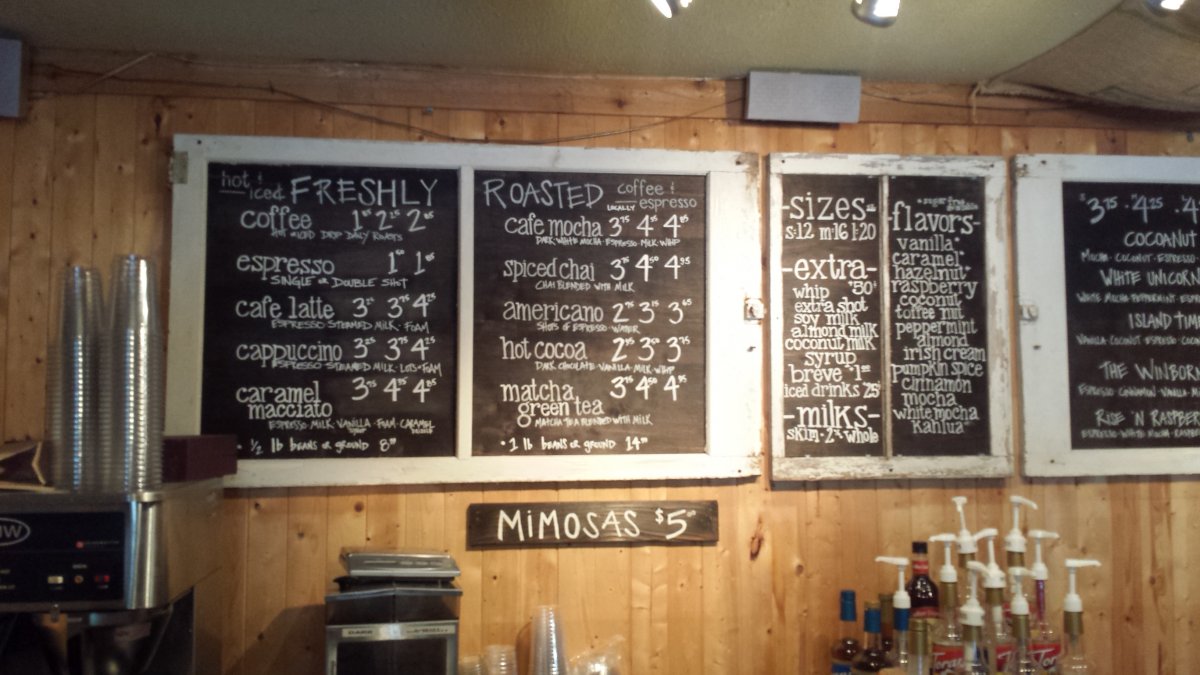 hot & iced FRESHLY
coffee 1⁸⁵ 2²⁵ 2⁸⁵
HOT & ICED DRIP DAILY ROASTS
espresso 1⁶⁰ 1⁸⁵
SINGLE OR DOUBLE SHOT
cafe latte 3²⁵ 3⁷⁵ 4²⁵
ESPRESSO · STEAMED MILK · FOAM
cappuccino 3²⁵ 3⁷⁵ 4²⁵
ESPRESSO · STEAMED MILK · LOTS OF FOAM
caramel macciato 3⁷⁵ 4⁴⁵ 4⁸⁵
ESPRESSO · MILK · VANILLA · FOAM · CARAMEL
• ½ lb BEANS OR GROUND 8⁰⁰
ROASTED coffee & espresso
LOCALLY
cafe mocha 3⁷⁵ 4⁴⁵ 4⁸⁵
DARK · WHITE MOCHA · ESPRESSO · MILK · WHIP
spiced chai 3⁷⁵ 4⁵⁰ 4⁹⁵
CHAI BLENDED WITH MILK
americano 2⁷⁵ 3¹⁵ 3⁶⁵
SHOTS OF ESPRESSO · WATER
hot cocoa 2⁷⁵ 3⁵⁰ 3⁷⁵
DARK CHOCOLATE · VANILLA · MILK · WHIP
matcha green tea 3⁷⁵ 4⁵⁰ 4⁹⁵
MATCHA TEA BLENDED WITH MILK
• 1 lb BEANS OR GROUND 14⁰⁰
-sizes-
s·12 m·16 l·20
-extra-
whip ·50¢
extra shot
soy milk
almond milk
coconut milk
syrup
breve
iced drinks 25¢
-milks-
skim · 2% whole
*sugar free available
flavors-
vanilla*
caramel*
hazelnut*
raspberry
coconut
toffee nut
peppermint
almond
irish cream
pumpkin spice
cinnamon
mocha
white mocha
kahlua*
$3.75 · 4.25
COCOANUT
MOCHA · COCONUT · ESPRESSO
WHITE UNICORN
WHITE MOCHA · PEPPERMINT
ISLAND TIME
VANILLA · COCONUT · ESPRESSO
THE WINBORN
ESPRESSO · CINNAMON · VANILLA
RISE 'N RASPBER
ESPRESSO · WHITE MOCHA
MIMOSAS $5⁰⁰
Torani